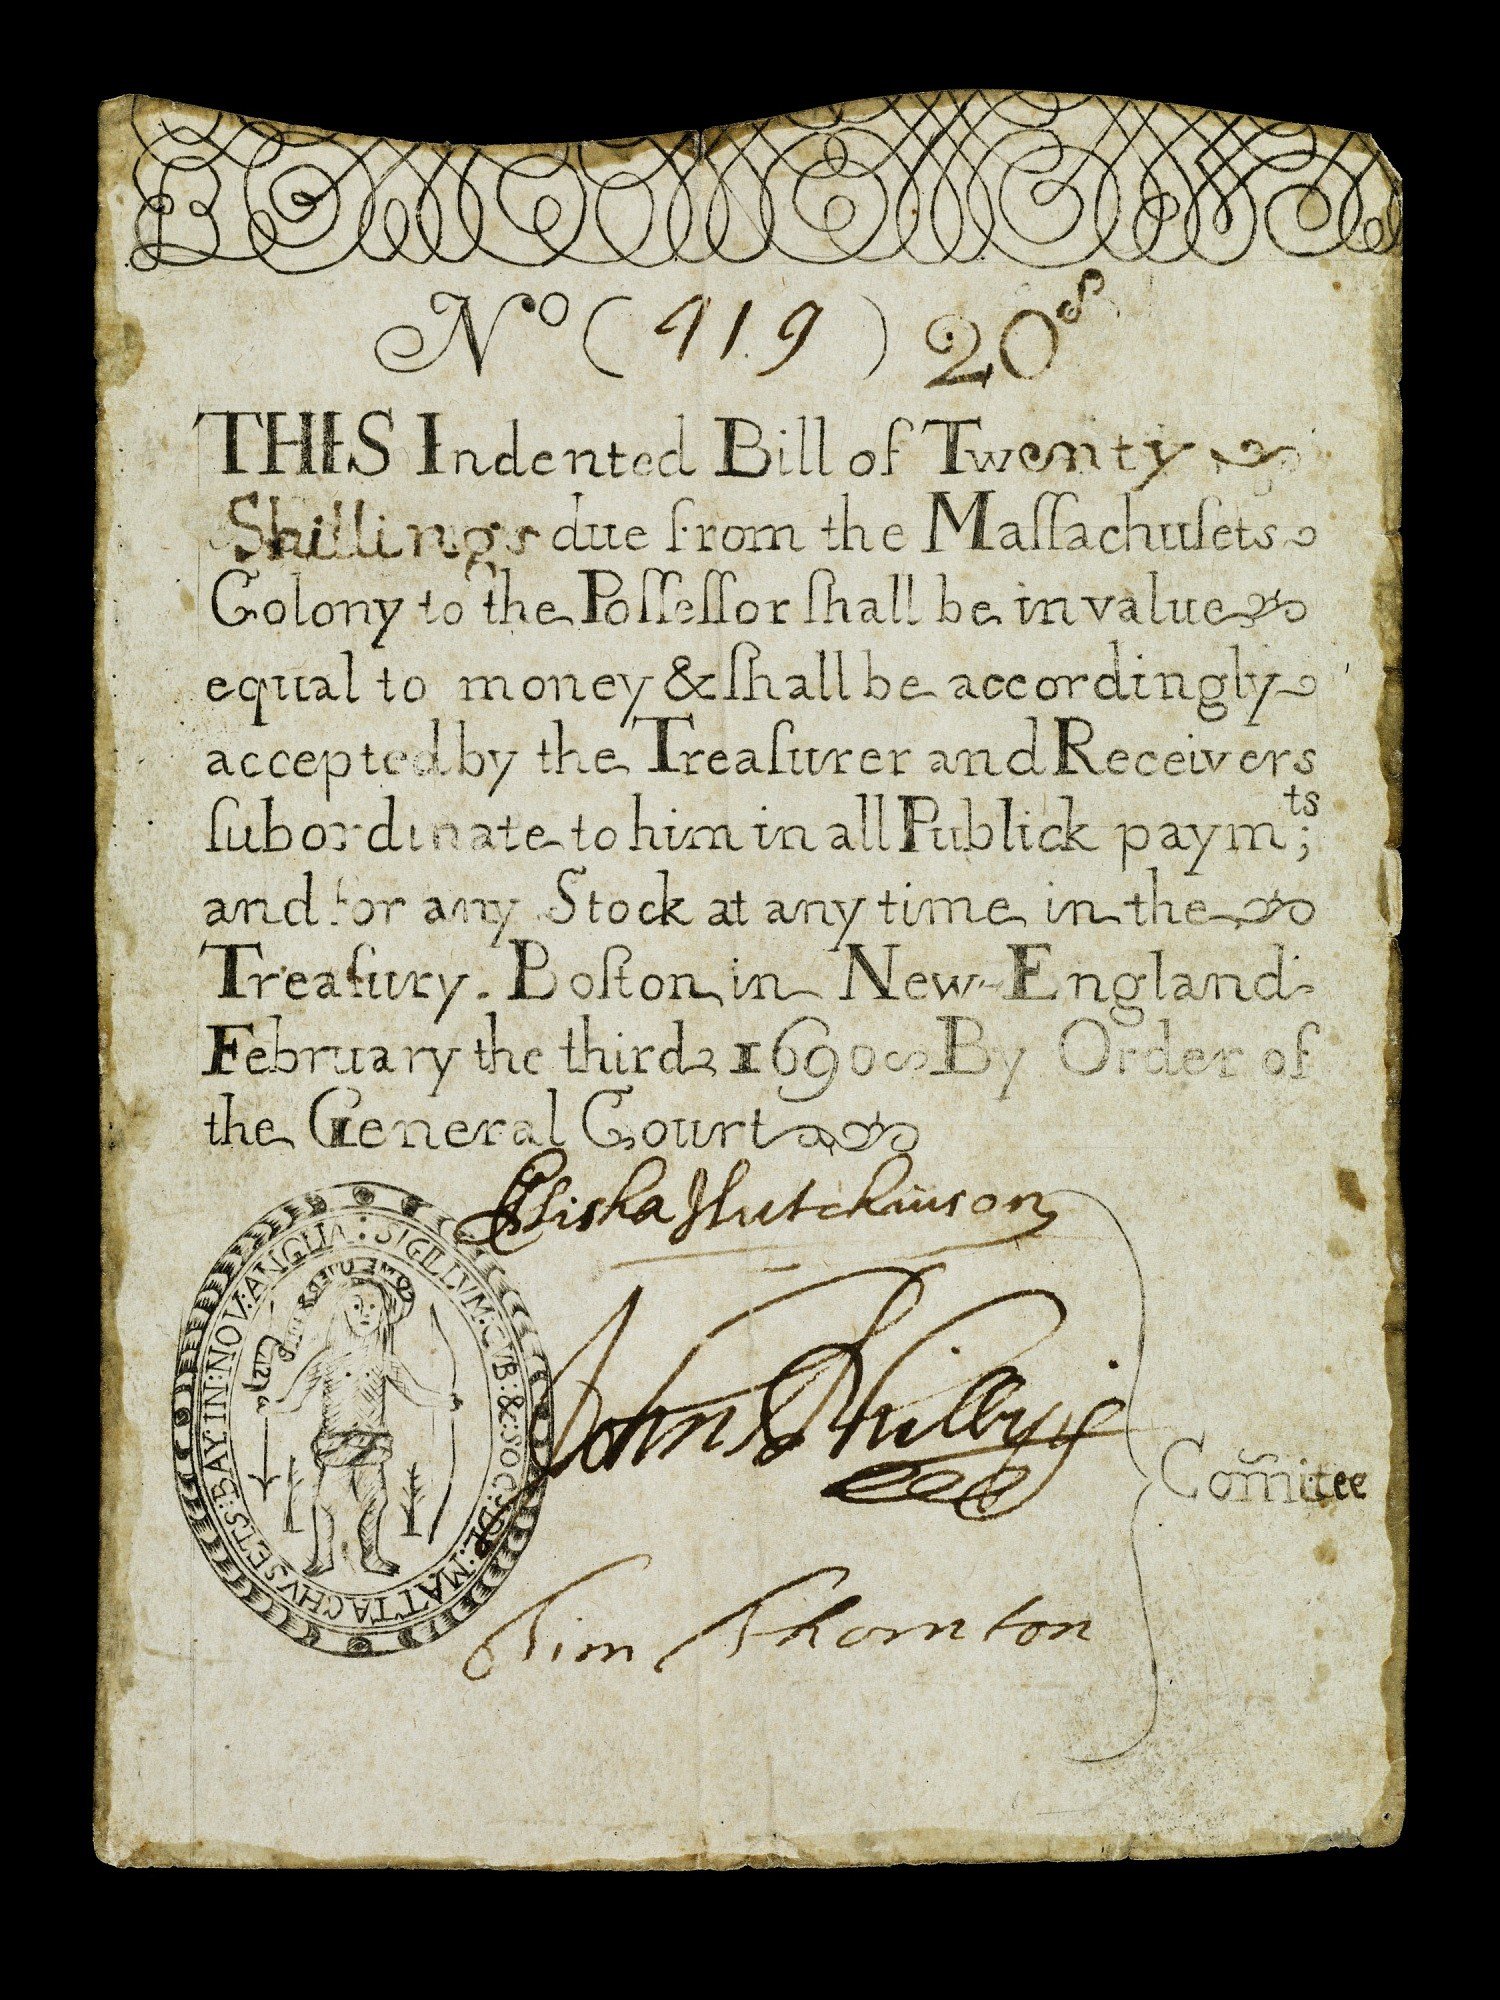 No (919) 20s
THIS Indented Bill of Twenty
Shillings due from the Maſſachuſets
Colony to the Poſſeſſor ſhall be in value
equal to money & ſhall be accordingly
accepted by the Treaſurer and Receivers
ſubordinate to him in all Publick paymts;
and for any Stock at any time in the
Treaſury. Boſton in New-England
February the third 1690 By Order of
the General Court
Elisha Hutchinson
John Phillips
Tim Thornton
Com̃itee
SIGILLVM:GVB:&:SOC:DE:MATTACHVSETS:BAY:IN:NOV:ANGLIA: